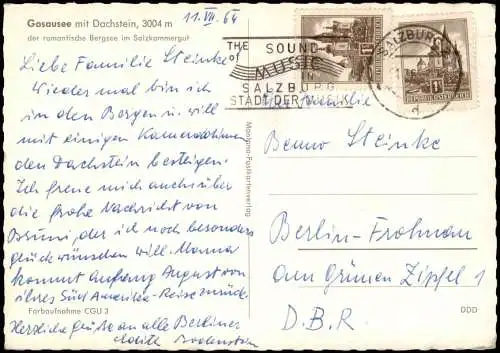 Gosausee mit Dachstein, 3004 m
der romantische Bergsee im Salzkammergut
11. VII. 64
Liebe Familie Steinke
Wieder mal bin ich
in den Bergen u. will
mit einigen Kameraden
den Dachstein besteigen.
Ich freue mich auch über
die frohe Nachricht von
der ich noch besonders
glückwünschen will. Mama
kommt Anfang August von
ihrer Süd Amerika-Reise zurück.
Herzliche Grüße an alle Berliner
Bodenstein
Farbaufnahme CGU 3
Mongona-Postkartenverlag
THE SOUND
of MUSIC
IN
SALZBURG
STADT DER MUSIK
SALZBURG
d
1S
1S
REPUBLIK ÖSTERREICH
und Familie
Benno Steinke
Berlin-Frohnau
am Grünen Zipfel 1
D.B.R.
DDD